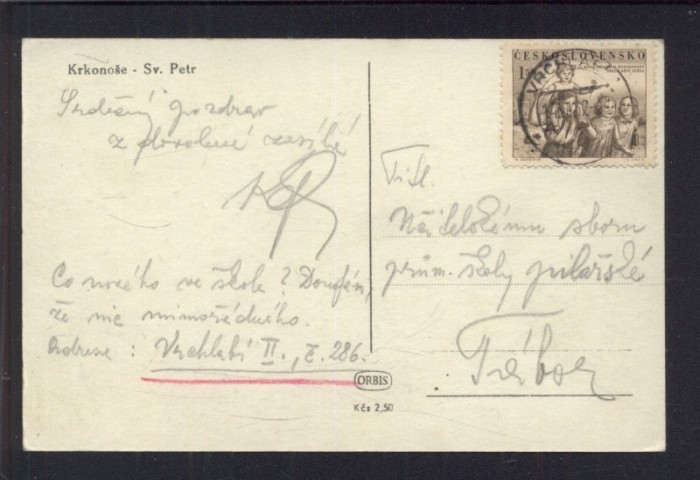 Krkonoše - Sv. Petr
Srdečný pozdrav
z dovolené zasílá
Co nového ve škole? Doufám,
že nic mimořádného.
Adresa: Vrchlabí II., č. 286.
ORBIS
Kčs 2,50
ČESKOSLOVENSKO
VRCH
Tit.
Učitelskému sboru
prům. školy pilařské
Tábor